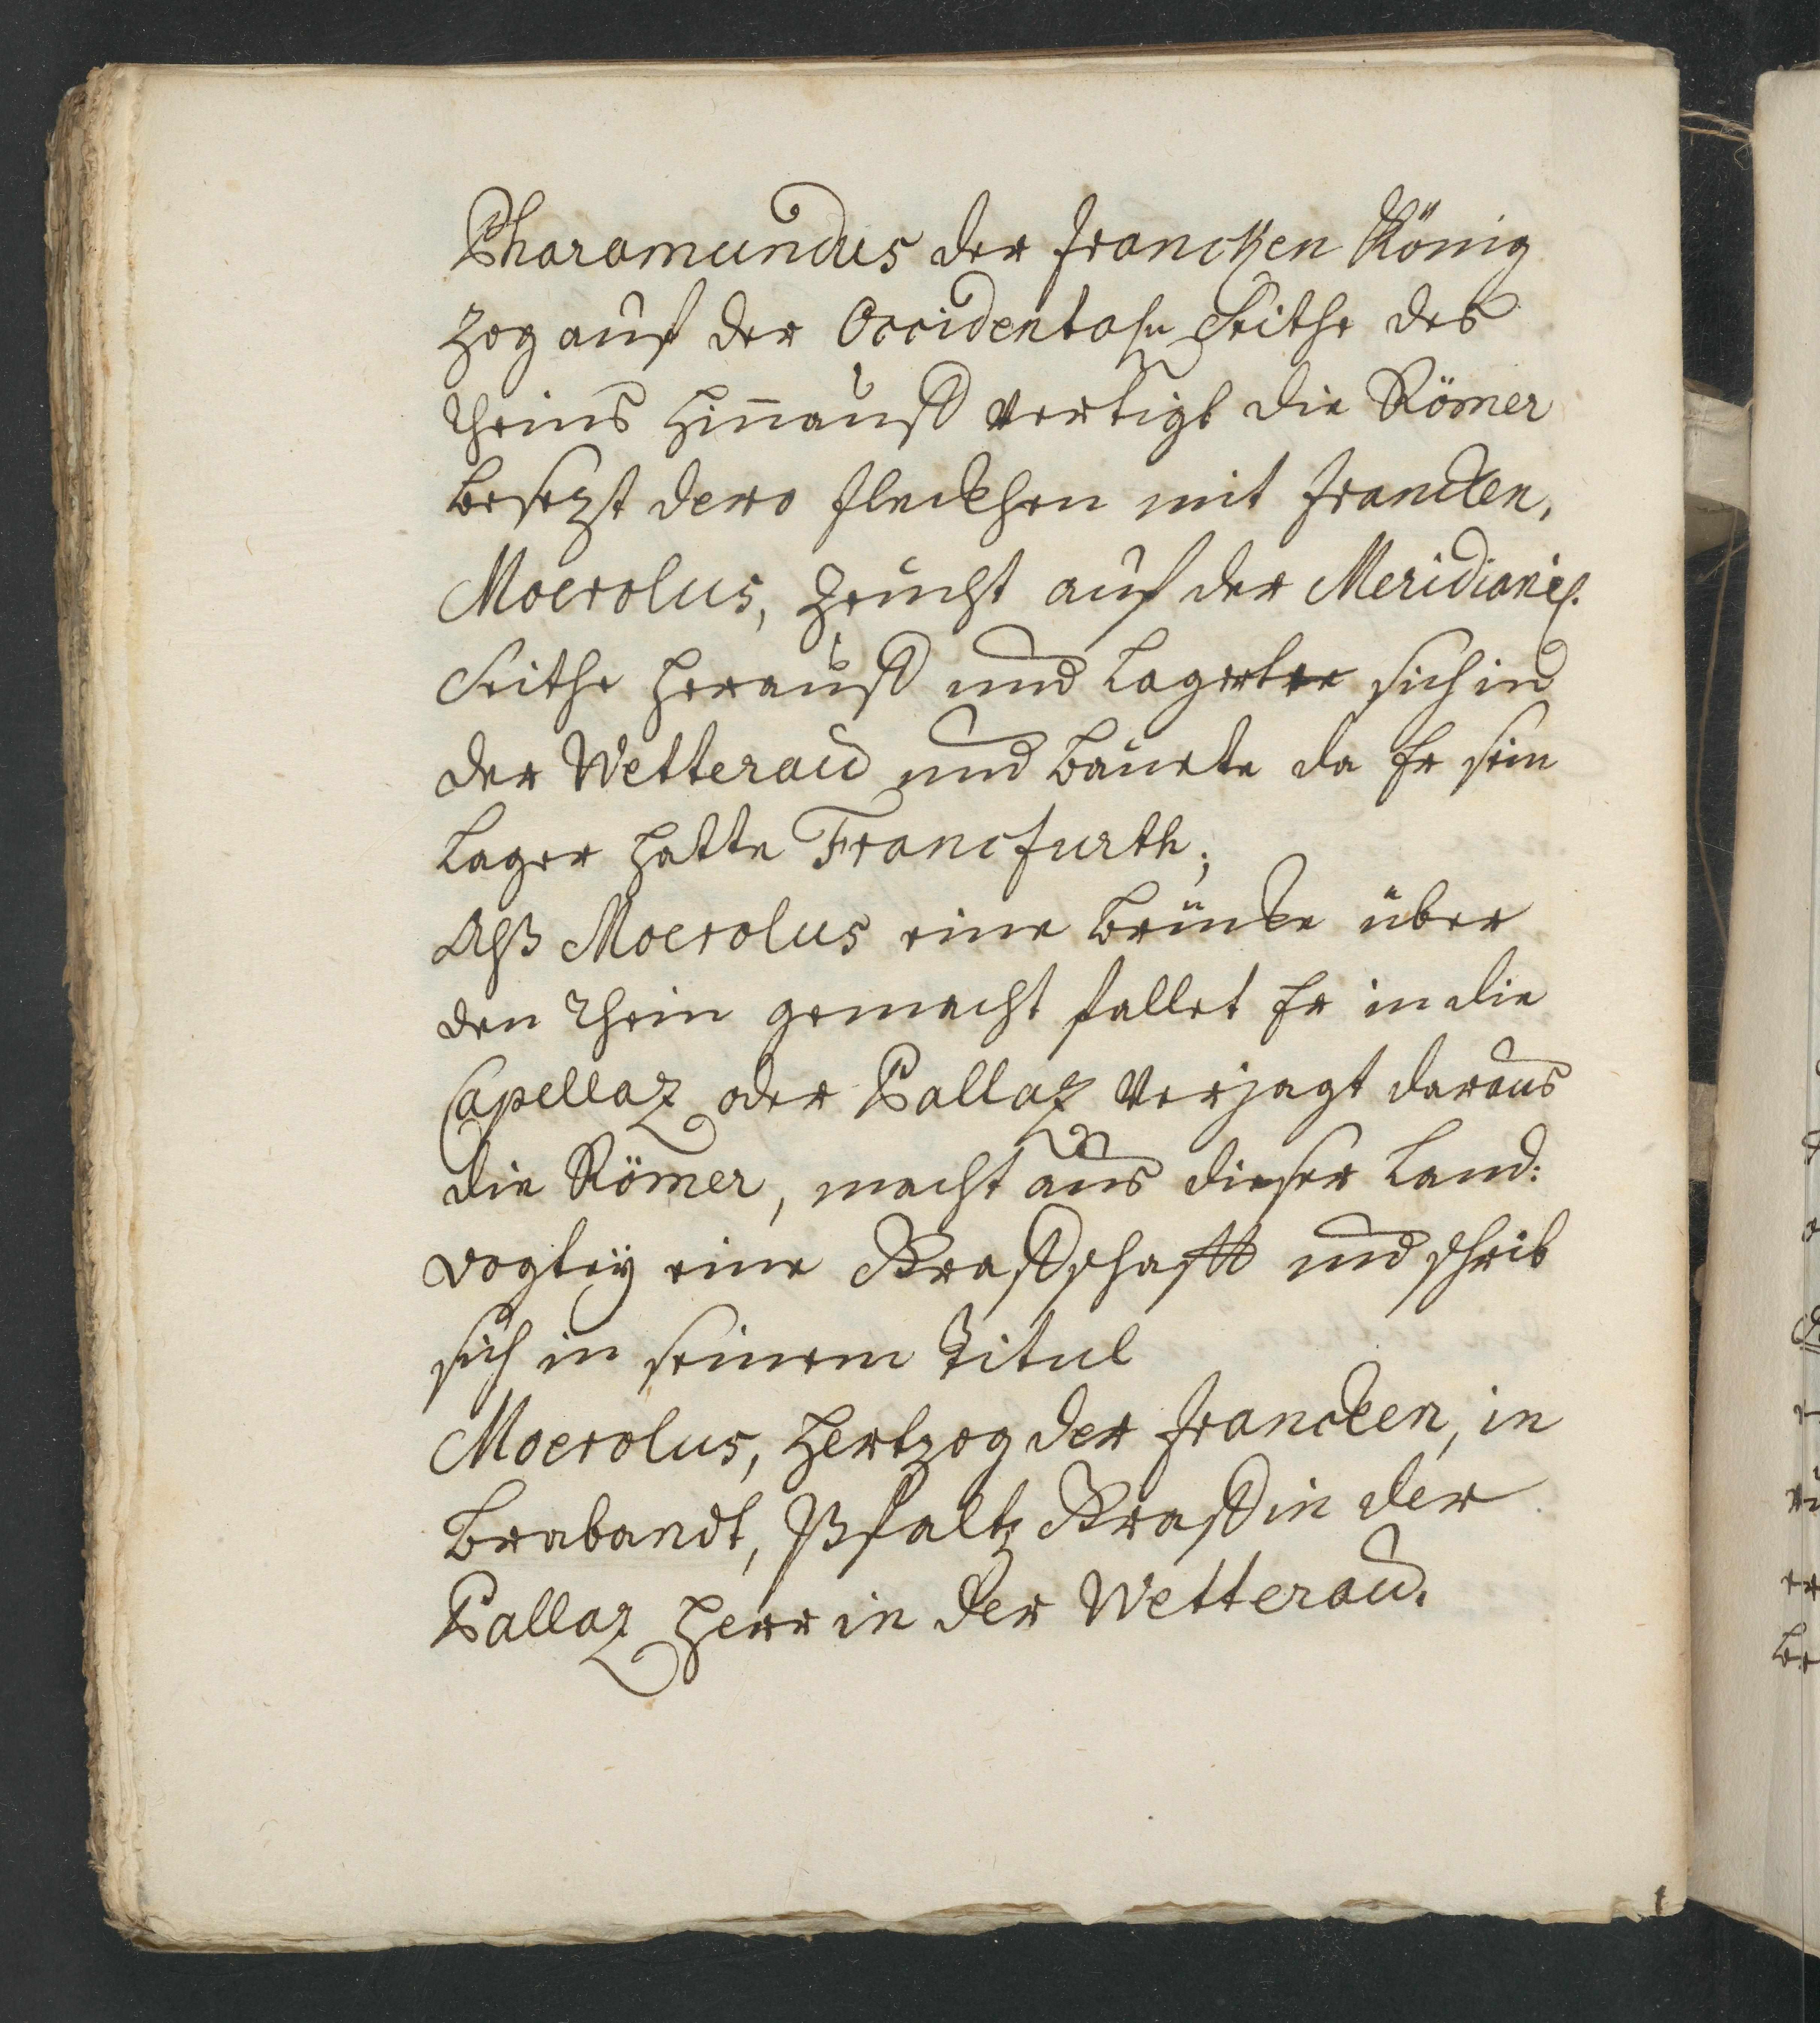 Pharamundus der francken König
zog auf der Occidentasn Seithe des
rheins hinnauß vertigt die Römer
besezt dero fleckhen mit francken,
Moerolus, zeucht auf der Meridionis.
Seithe herauß und Lagerte sich in
der Wetterau und bauete da Er sein
Lager hatte Francfurth;
Alß Moerolus eine brücke über
den rhein gemacht fallet Er in die
Capellaz oder Pallaz verjagt daraus
die Römer, macht aus dieser Land:
vogteÿ eine Graffschafft und schrib
sich in seinem Titul
Moerolus, Hertzog der francken, in
Brabandt, Pfaltz Graff in der
Pallaz Herr in der Wetterau.